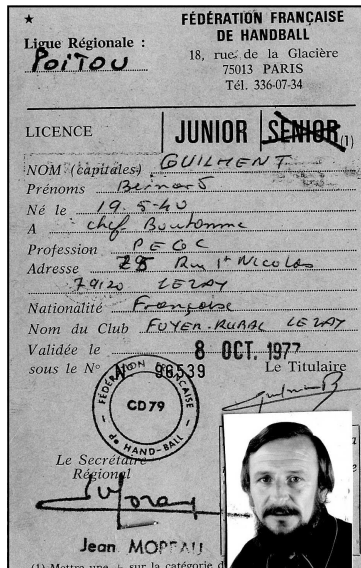 ★
FÉDÉRATION FRANÇAISE
DE HANDBALL
Ligue Régionale :
POITOU
18, rue de la Glacière
75013 PARIS
Tél. 336-07-34
LICENCE JUNIOR SENIOR (1)
NOM (capitales) GUILMENT
Prénoms Bernard
Né le 19.5-40
A chef Boutonne
Profession PEGC
Adresse Rue St Nicolas
79120 LEZAY
Nationalité Française
Nom du Club FOYER-RURAL LEZAY
Validée le 8 OCT. 1977
sous le N° 96539 Le Titulaire
FÉDÉRATION FRANÇAISE
CD79
de HAND-BALL
Le Secrétaire
Régional
Jean MOREAU
(1) Mettre une sur la catégorie